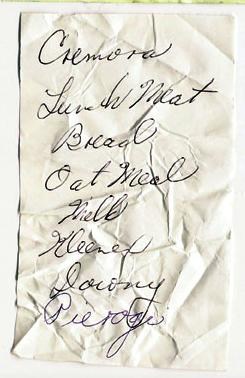 Cremora
Lunch Meat
Bread
Oat Meal
Milk
Kleenex
Downy
Pierogi